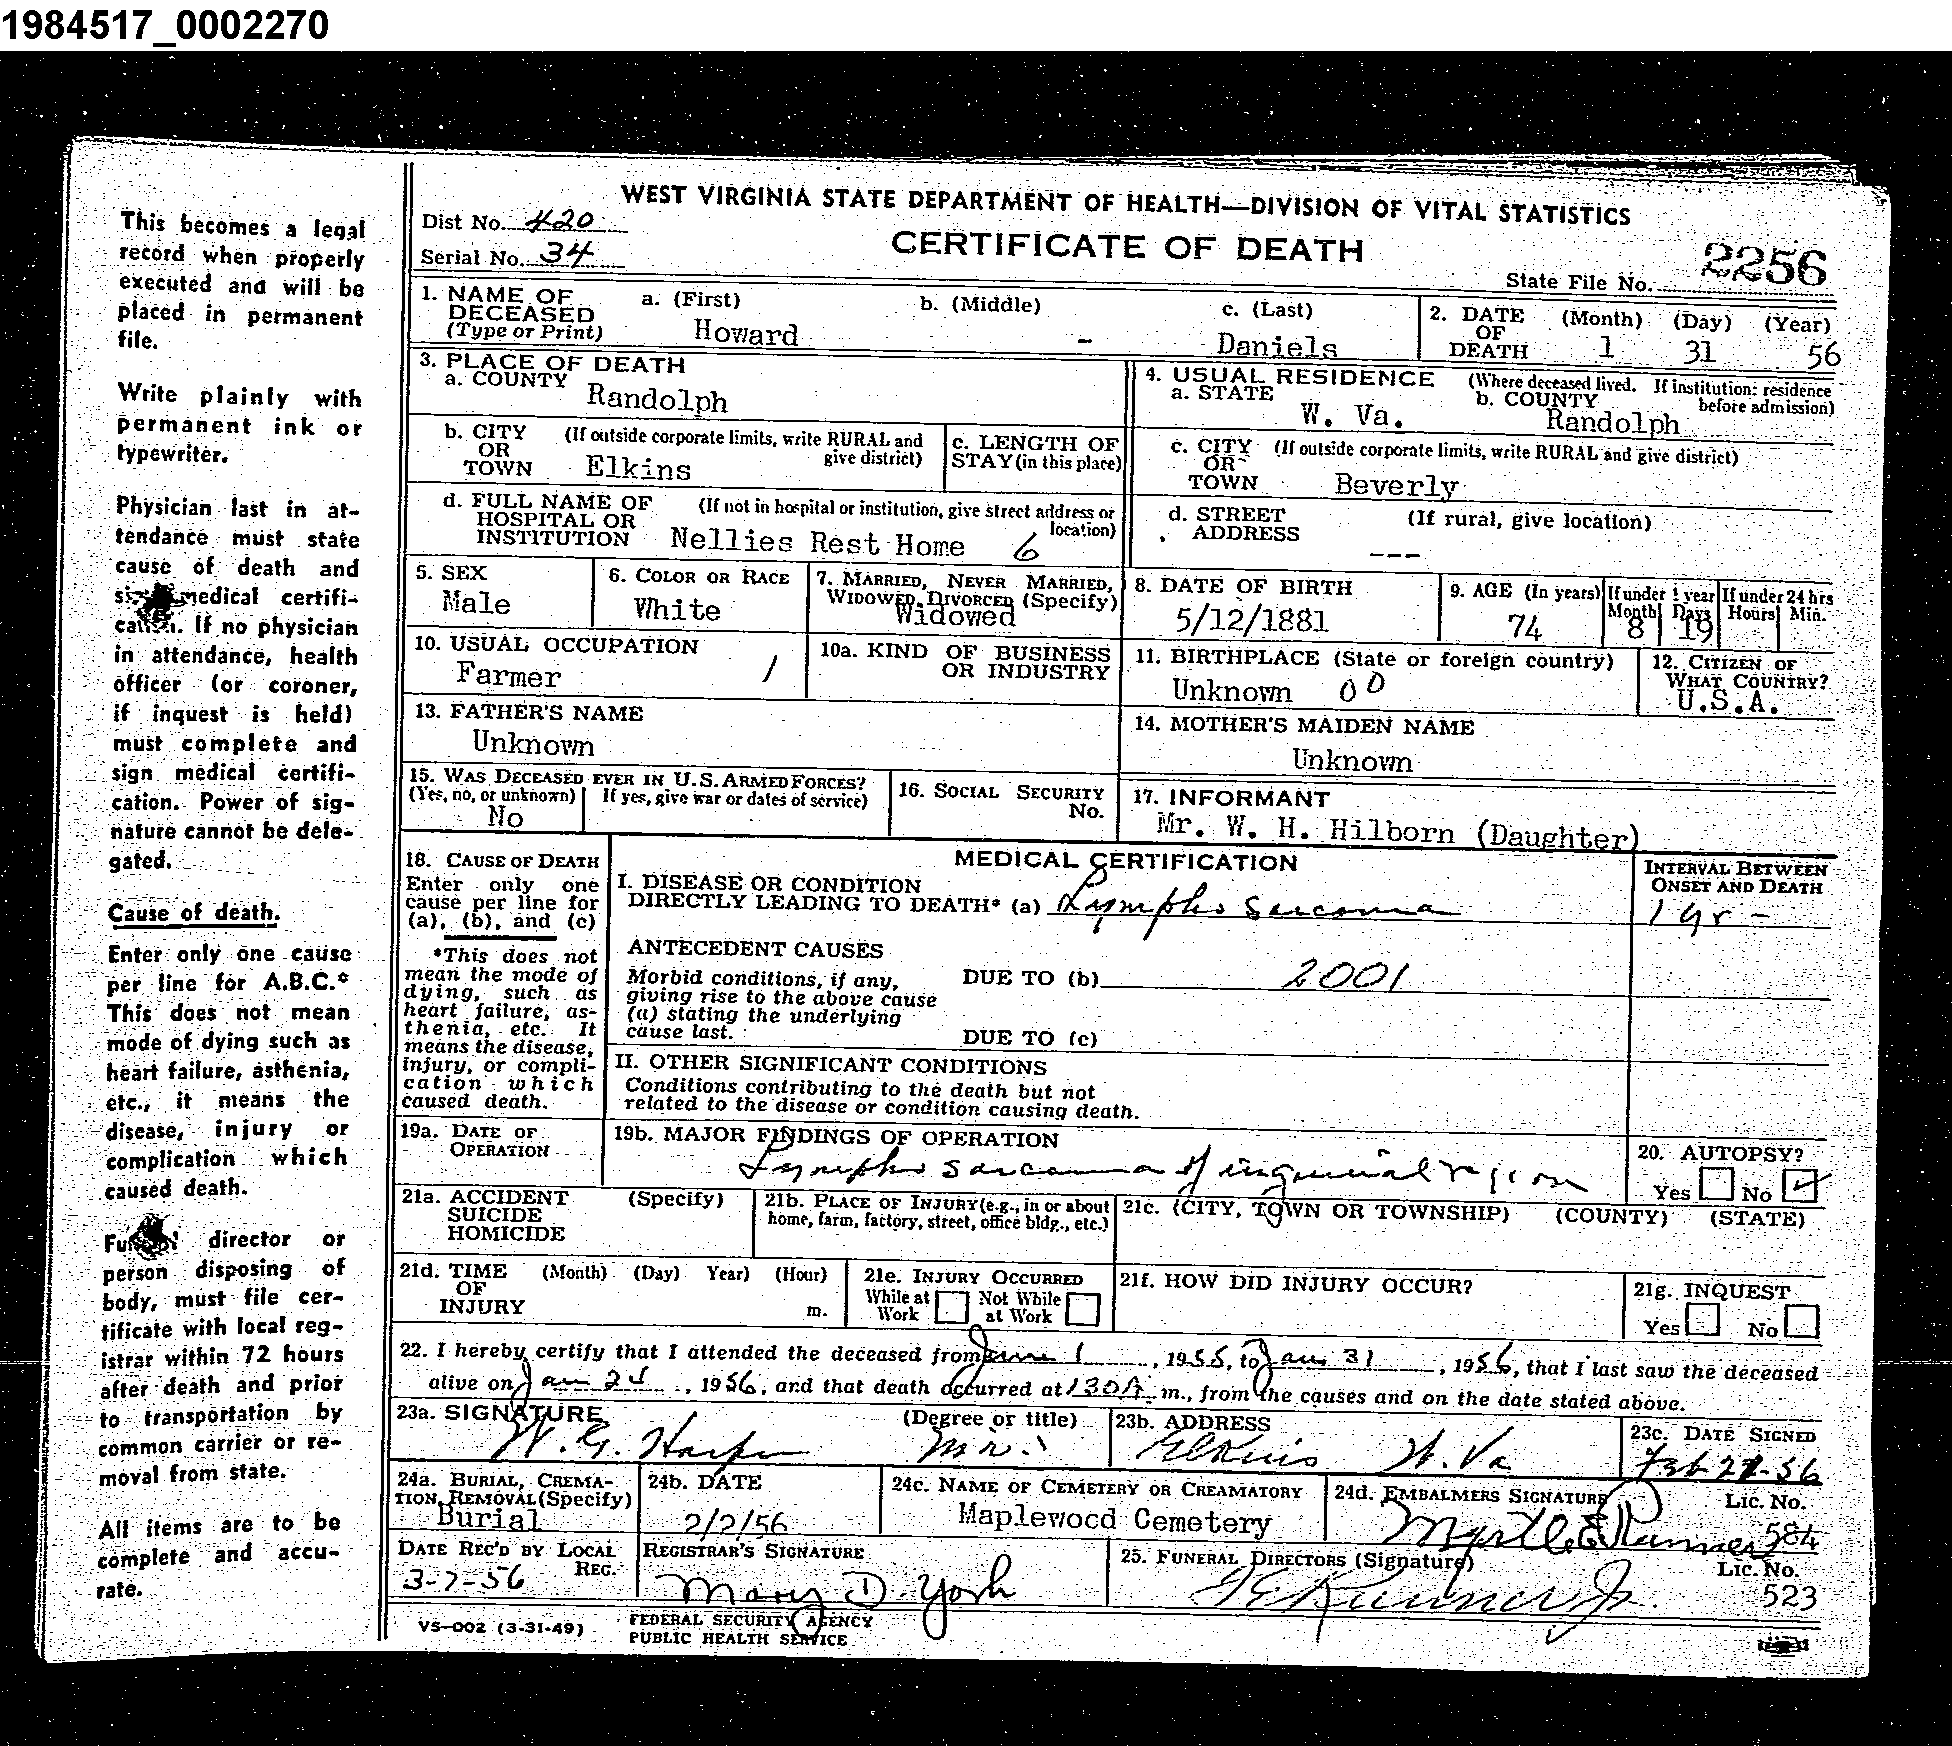 1984517_0002270
This becomes a legal
record when properly
executed and will be
placed in permanent
file.
Write plainly with
permanent ink or
typewriter.
Physician last in at-
tendance must state
cause of death and
medical certifi-
If no physician
in attendance, health
officer (or coroner,
if inquest is held)
must complete and
sign medical certifi-
cation. Power of sig-
nature cannot be dele-
gated.
Cause of death.
Enter only one cause
per line for A.B.C.*
This does not mean
mode of dying such as
heart failure, asthenia,
etc., it means the
disease, injury or
complication which
caused death.
director or
person disposing of
body, must file cer-
tificate with local reg-
istrar within 72 hours
after death and prior
to transportation by
common carrier or re-
moval from state.
All items are to be
complete and accu-
rate.
WEST VIRGINIA STATE DEPARTMENT OF HEALTH—DIVISION OF VITAL STATISTICS
Dist No. 420
CERTIFICATE OF DEATH
Serial No. 34
State File No. 2256
1. NAME OF DECEASED (Type or Print) a. (First) Howard b. (Middle) - c. (Last) Daniels
2. DATE OF DEATH (Month) 1 (Day) 31 (Year) 56
3. PLACE OF DEATH
a. COUNTY Randolph
4. USUAL RESIDENCE (Where deceased lived. If institution: residence before admission)
a. STATE W. Va. b. COUNTY Randolph
b. CITY OR TOWN (If outside corporate limits, write RURAL and give district) Elkins
c. LENGTH OF STAY (in this place)
c. CITY OR TOWN (If outside corporate limits, write RURAL and give district) Beverly
d. FULL NAME OF HOSPITAL OR INSTITUTION (If not in hospital or institution, give street address or location) Nellies Rest Home 6
d. STREET ADDRESS (If rural, give location) ---
5. SEX Male
6. COLOR OR RACE White
7. MARRIED, NEVER MARRIED, WIDOWED, DIVORCED (Specify) Widowed
8. DATE OF BIRTH 5/12/1881
9. AGE (In years) 74 If under 1 year Month 8 Days 19 If under 24 hrs Hours Min.
10. USUAL OCCUPATION Farmer 1
10a. KIND OF BUSINESS OR INDUSTRY
11. BIRTHPLACE (State or foreign country) Unknown 00
12. CITIZEN OF WHAT COUNTRY? U.S.A.
13. FATHER'S NAME Unknown
14. MOTHER'S MAIDEN NAME Unknown
15. WAS DECEASED EVER IN U.S. ARMED FORCES? (Yes, no, or unknown) No If yes, give war or dates of service)
16. SOCIAL SECURITY No.
17. INFORMANT Mr. W. H. Hilborn (Daughter)
18. CAUSE OF DEATH
Enter only one
cause per line for
(a), (b), and (c)
*This does not
mean the mode of
dying, such as
heart failure, as-
thenia, etc. It
means the disease,
injury, or compli-
cation which
caused death.
MEDICAL CERTIFICATION
INTERVAL BETWEEN ONSET AND DEATH
I. DISEASE OR CONDITION
DIRECTLY LEADING TO DEATH* (a) Lympho sarcoma 1 yr -
ANTECEDENT CAUSES
Morbid conditions, if any,
giving rise to the above cause
(a) stating the underlying
cause last.
DUE TO (b) 2001
DUE TO (c)
II. OTHER SIGNIFICANT CONDITIONS
Conditions contributing to the death but not
related to the disease or condition causing death.
19a. DATE OF OPERATION
19b. MAJOR FINDINGS OF OPERATION
Lympho sarcoma of inguinal region
20. AUTOPSY?
Yes No
21a. ACCIDENT SUICIDE HOMICIDE (Specify)
21b. PLACE OF INJURY (e.g., in or about home, farm, factory, street, office bldg., etc.)
21c. (CITY, TOWN OR TOWNSHIP) (COUNTY) (STATE)
21d. TIME OF INJURY (Month) (Day) Year) (Hour) m.
21e. INJURY OCCURRED While at Work Not While at Work
21f. HOW DID INJURY OCCUR?
21g. INQUEST Yes No
22. I hereby certify that I attended the deceased from June 1, 1955, to Jan 31, 1956, that I last saw the deceased
alive on Jan 25, 1956, and that death occurred at 130A m., from the causes and on the date stated above.
23a. SIGNATURE W. G. Harper (Degree or title) M.D.
23b. ADDRESS Elkins W. Va
23c. DATE SIGNED Feb 27-56
24a. BURIAL, CREMATION, REMOVAL (Specify) Burial
24b. DATE 2/2/56
24c. NAME OF CEMETERY OR CREAMATORY Maplewood Cemetery
24d. EMBALMERS SIGNATURE Myrtle E Runner Lic. No. 584
DATE REC'D BY LOCAL REG. 3-7-56
REGISTRAR'S SIGNATURE Mary D. York
25. FUNERAL DIRECTORS (Signature) Runner Jr. Lic. No. 523
VS-002 (3-31-49)
FEDERAL SECURITY AGENCY
PUBLIC HEALTH SERVICE